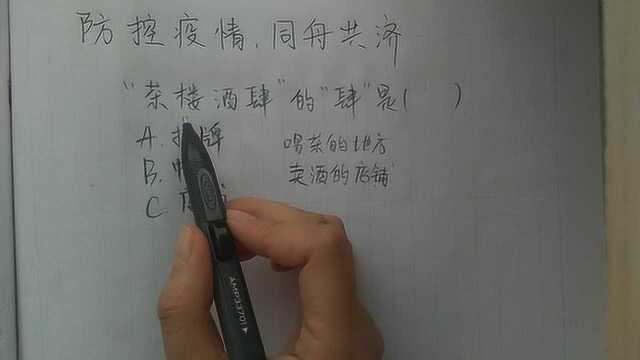 防控疫情,同舟共济
"茶楼酒肆"的"肆"是( )
A. 牌 喝茶的地方
B. 卖酒的店铺
C.
AMP33701